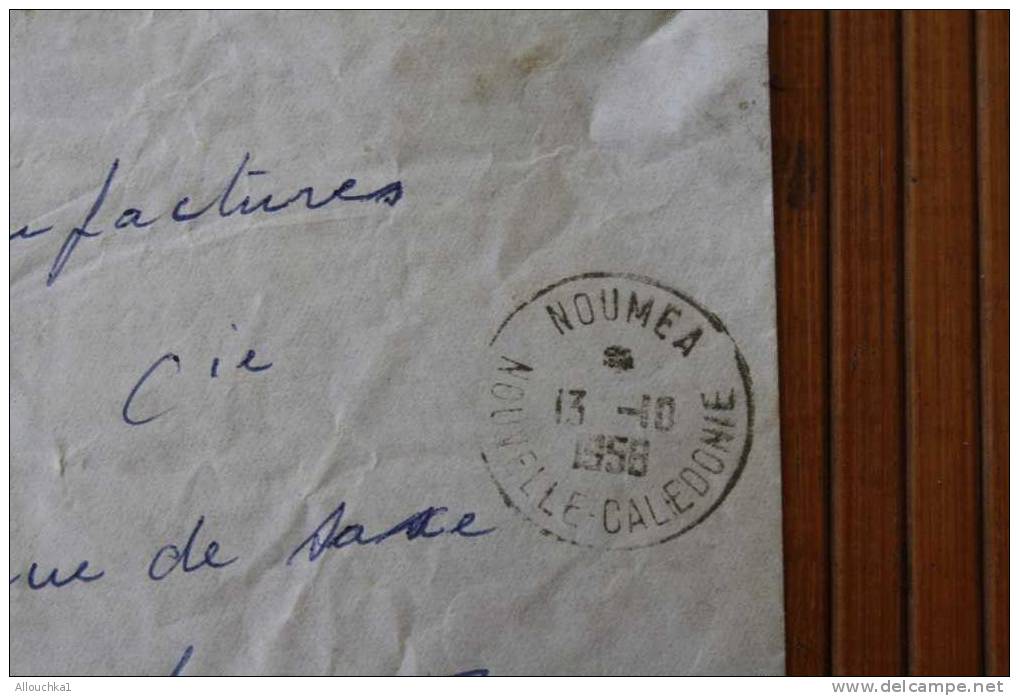 factures
Cie
NOUMEA
13 -10
1958
NOUVELLE-CALEDONIE
de saxe
Allouchka1
www.delcampe.net